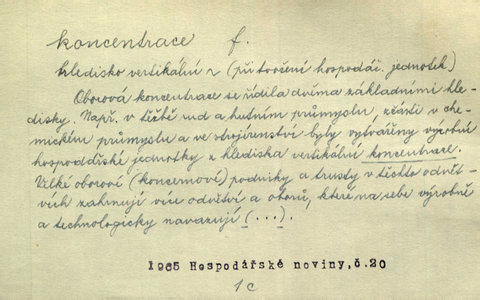 koncentrace f.
hledisko vertikální ~ (při tvoření hospodář. jednotek)
Oborová koncentrace se řídila dvěma základními hle-
disky. Např. v těžbě rud a hutním průmyslu, zčásti v che-
mickém průmyslu a ve strojírenství byly vytvářeny výrobně
hospodářské jednotky z hlediska vertikální koncentrace.
Velké oborové (koncernové) podniky a trusty v těchto odvět-
vích zahrnují více odvětví a oborů, které na sebe výrobně
a technologicky navazují (...).
1965 Hospodářské noviny,č.20
1c